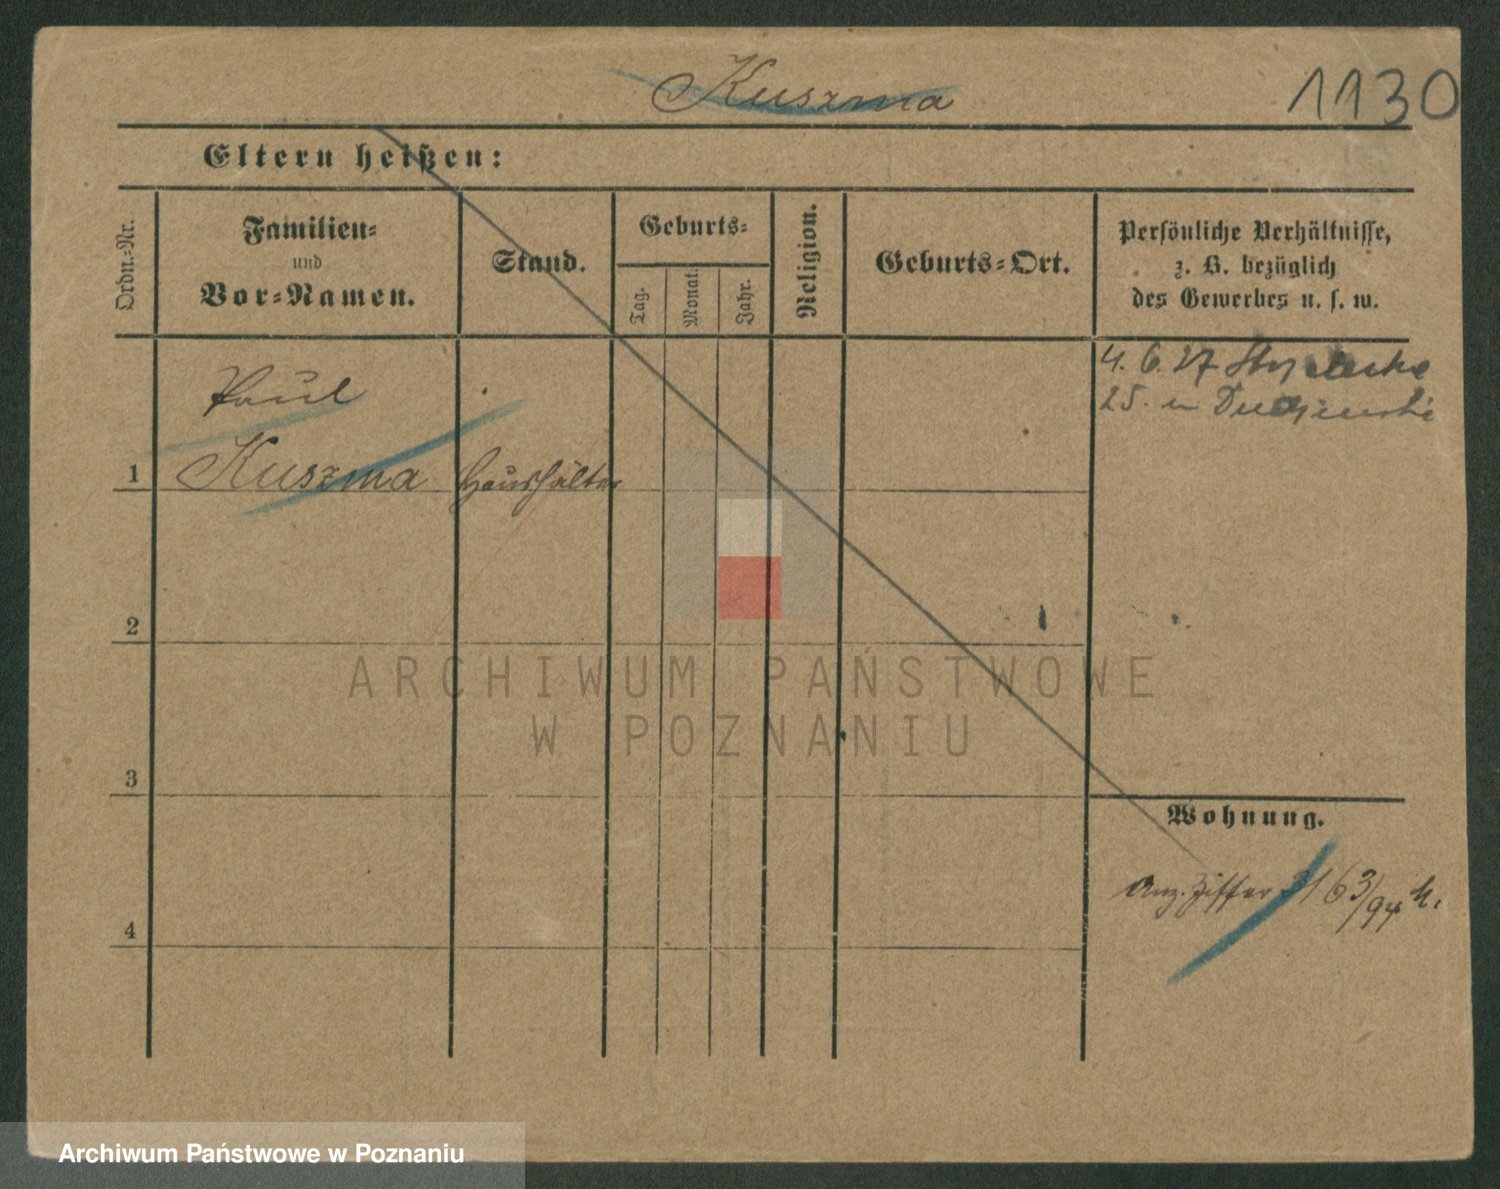 Kuszma
1130
Eltern heißen:
Ordn.-Nr.
Familien-
und
Vor-Namen.
Stand.
Geburts-
Tag.
Monat.
Jahr.
Religion.
Geburts-Ort.
Persönliche Verhältnisse,
z. B. bezüglich
des Gewerbes u. s. w.
4. 6. 27
25.
Paul
1 Kuszma Haushälter
2
3
4
Wohnung.
Anz. Ziffer 3163/94
ARCHIWUM PAŃSTWOWE
W POZNANIU
Archiwum Państwowe w Poznaniu